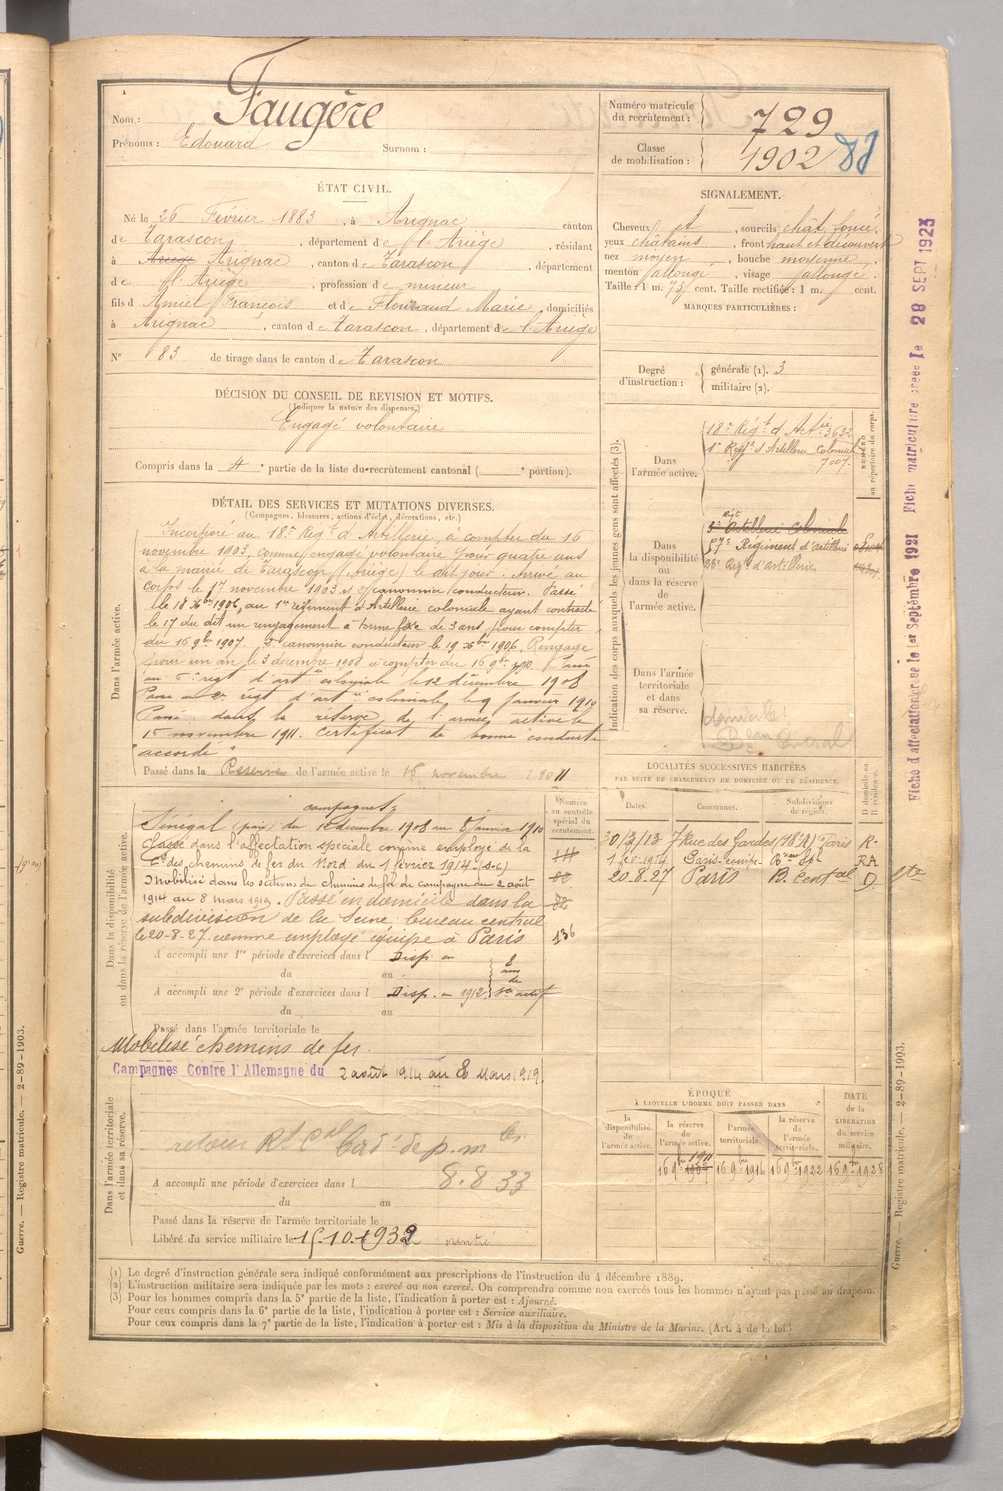 Nom : Faugère
Prénoms : Edouard Surnom :
Numéro matricule du recrutement : 729
Classe de mobilisation : 1902
ÉTAT CIVIL.
Né le 26 Février 1883, à Arignac canton
de Tarascon, département de l'Ariège, résidant
à Ariège Arignac, canton de Tarascon, département
de l'Ariège, profession de mineur
fils d'Amiel François et de Flouraud Marie domiciliés
à Arignac, canton de Tarascon, département de l'Ariège
N° 83 de tirage dans le canton de Tarascon
SIGNALEMENT.
Cheveux et, sourcils chât. foncé.
yeux châtains, front haut et découvert
nez moyen, bouche moyenne
menton allongé, visage allongé.
Taille : 1 m. 73 cent. Taille rectifiée : 1 m. cent.
MARQUES PARTICULIÈRES :
Degré d'instruction : générale (1). 3
militaire (2).
DÉCISION DU CONSEIL DE REVISION ET MOTIFS.
(Indiquer la nature des dispenses.)
Engagé volontaire
Compris dans la 4e partie de la liste du recrutement cantonal ( e portion).
DÉTAIL DES SERVICES ET MUTATIONS DIVERSES.
(Campagnes, blessures, actions d'éclat, décorations, etc.)
Dans l'armée active.
Incorporé au 18e Régt d'Artillerie, à compter du 16
novembre 1903, comme engagé volontaire pour quatre ans
à la mairie de Tarascon (Ariège) le dit jour. Arrivé au
corps le 17 novembre 1903 et canonnier conducteur. Passé
le 18 Xbre 1906, au 1er régiment d'Artillerie coloniale ayant contracté
le 17 du dit un rengagement à terme fixe de 3 ans, pour compter
du 16 9bre 1907. 2e canonnier conducteur le 19 Xbre 1906. Rengagé
pour un an le 3 décembre 1908 à compter du 16 9bre 1910. Passé
au régt d'artie coloniale le 12 décembre 1908
Passé au 2e régt d'artie coloniale le 9 janvier 1910
Passé dans la réserve de l'armée active le
15 novembre 1911. Certificat de bonne conduite
"accordé"
Passé dans la Réserve de l'armée active le 16 novembre 1911
Indication des corps auxquels les jeunes gens sont affectés (3).
NUMÉRO au répertoire du corps.
Dans l'armée active.
18e Régt d'Artie 3632
1er Régt d'Artillerie Coloniale 7007.
Dans la disponibilité ou dans la réserve de l'armée active.
3e Rgt Artillerie Coloniale
57e Régiment d'artillerie
23e Régt d'artillerie
Dans l'armée territoriale et dans sa réserve.
domicile
Beau Central
LOCALITÉS SUCCESSIVES HABITÉES
PAR SUITE DE CHANGEMENTS DE DOMICILE OU DE RÉSIDENCE.
Dates. Communes. Subdivisions de région. D domicile ou R résidence.
30/3/13 7 Rue des Gardes (18e A) Paris R.
Paris
20.8.27 Paris B. Central D.
Dans la disponibilité ou dans la réserve de l'armée active.
Numéro au contrôle spécial du recrutement.
Campagnes
Sénégal (paix) du 12 décembre 1908 au 8 janvier 1910
Classé dans l'affectation spéciale comme employé de la
Cie des chemins de fer du Nord du 1 février 1914 (S-C)
Mobilisé dans les sections de chemins de fer de campagne du 2 août
1914 au 8 mars 1919. Passé en domicile dans la
subdivision de la Seine bureau central
le 20-8-27 comme employé équipe à Paris
136
A accompli une 1re période d'exercices dans l Disp. en
du au
A accompli une 2e période d'exercices dans l Disp. en 1912
du au
Passé dans l'armée territoriale le
Mobilisé chemins de fer
Campagnes Contre l'Allemagne du 2 août 1914 au 8 Mars 1919.
Dans l'armée territoriale et dans sa réserve.
retour
8.8.33
A accompli une période d'exercices dans l
du au
Passé dans la réserve de l'armée territoriale le
Libéré du service militaire le 15.10.1932
ÉPOQUE
À LAQUELLE L'HOMME DOIT PASSER DANS
la disponibilité de l'armée active.
la réserve de l'armée active.
l'armée territoriale.
la réserve de l'armée territoriale.
DATE de la LIBÉRATION du service militaire.
16 9bre 1907 1911
16 9bre 1916
16 9bre 1922
16 9bre 1928
(1) Le degré d'instruction générale sera indiqué conformément aux prescriptions de l'instruction du 4 décembre 1889.
(2) L'instruction militaire sera indiquée par les mots : exercé ou non exercé. On comprendra comme non exercés tous les hommes n'ayant pas passé au drapeau.
(3) Pour les hommes compris dans la 5e partie de la liste, l'indication à porter est : Ajourné.
Pour ceux compris dans la 6e partie de la liste, l'indication à porter est : Service auxiliaire.
Pour ceux compris dans la 7e partie de la liste, l'indication à porter est : Mis à la disposition du Ministre de la Marine. (Art. 4 de la loi.)
Fiche d'affectation créée le 1er Septembre 1921 Fiche matriculaire créée le 29 SEPT 1923
Guerre. — Registre matricule. — 2-89-1903.
Guerre. — Registre matricule. — 2-89-1903.